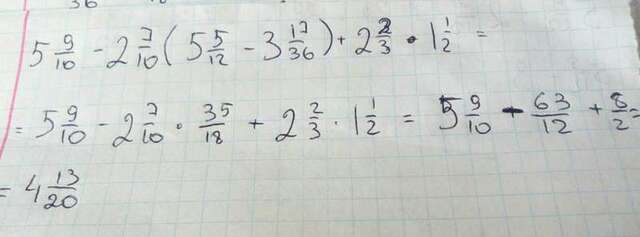 5 9/10 - 2 7/10 ( 5 5/12 - 3 17/36 ) + 2 2/3 · 1 1/2 =
= 5 9/10 - 2 7/10 · 35/18 + 2 2/3 · 1 1/2 = 5 9/10 - 63/12 + 8/2 =
= 4 13/20